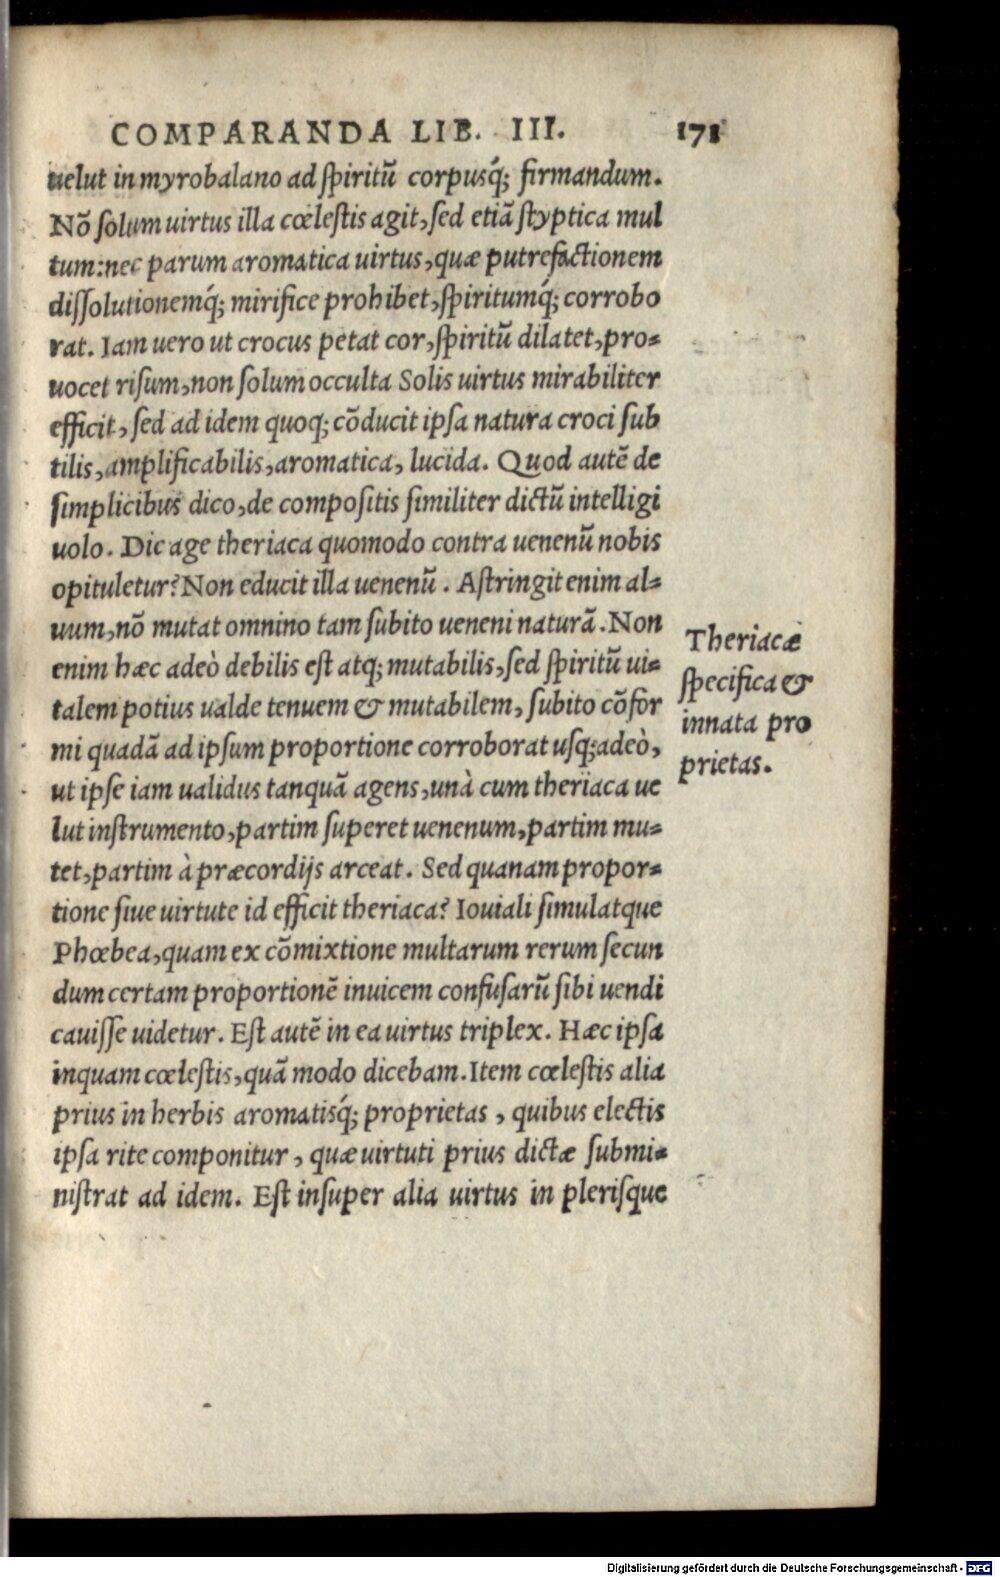 COMPARANDA LIB. III. 171
uelut in myrobalano ad ſpiritũ corpusq́; firmandum.
Nõ ſolum uirtus illa cœleſtis agit, ſed etiã ſtyptica mul
tum: nec parum aromatica uirtus, quæ putrefactionem
diſſolutionemq́; mirifice prohibet, ſpiritumq́; corrobo
rat. Iam uero ut crocus petat cor, ſpiritũ dilatet, pro⸗
uocet riſum, non ſolum occulta Solis uirtus mirabiliter
efficit, ſed ad idem quoq; cõducit ipſa natura croci ſub
tilis, amplificabilis, aromatica, lucida. Quod autẽ de
ſimplicibus dico, de compoſitis ſimiliter dictũ intelligi
uolo. Dic age theriaca quomodo contra uenenũ nobis
opituletur? Non educit illa uenenũ. Aſtringit enim al⸗
uum, nõ mutat omnino tam ſubito ueneni naturã. Non
enim hæc adeò debilis eſt atq; mutabilis, ſed ſpiritũ ui⸗
talem potius ualde tenuem & mutabilem, ſubito cõfor
mi quadã ad ipſum proportione corroborat uſq; adeò,
ut ipſe iam ualidus tanquã agens, unà cum theriaca ue
lut inſtrumento, partim ſuperet uenenum, partim mu⸗
tet, partim à præcordijs arceat. Sed quanam propor⸗
tione ſiue uirtute id efficit theriaca? Iouiali ſimulatque
Phœbea, quam ex cõmixtione multarum rerum ſecun
dum certam proportionẽ inuicem confuſarũ ſibi uendi
cauiſſe uidetur. Eſt autẽ in ea uirtus triplex. Hæc ipſa
inquam cœleſtis, quã modo dicebam. Item cœleſtis alia
prius in herbis aromatisq́; proprietas, quibus electis
ipſa rite componitur, quæ uirtuti prius dictæ ſubmi⸗
niſtrat ad idem. Eſt inſuper alia uirtus in pleriſque
Theriacæ
ſpecifica &
innata pro
prietas.
Digitalisierung gefördert durch die Deutsche Forschungsgemeinschaft - DFG